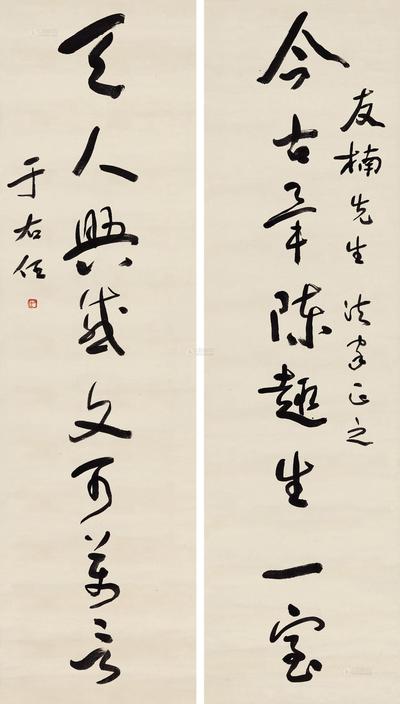 友楠先生 法家正之
今古畢陳趣生一室
天人興感文可萬言
于右任